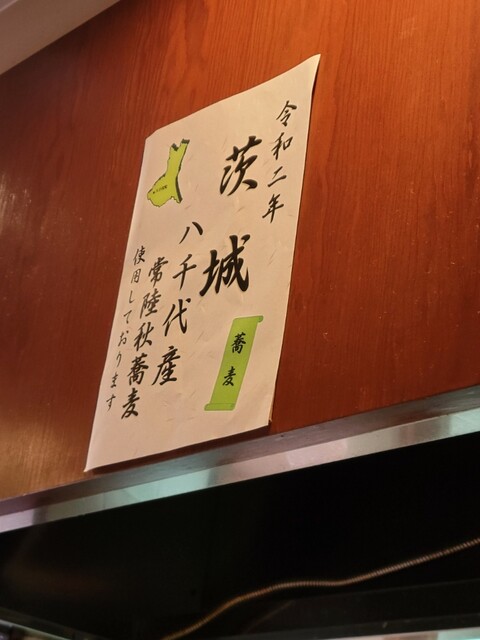 令和二年
茨城
蕎麦
八千代産
常陸秋蕎麦
使用しております